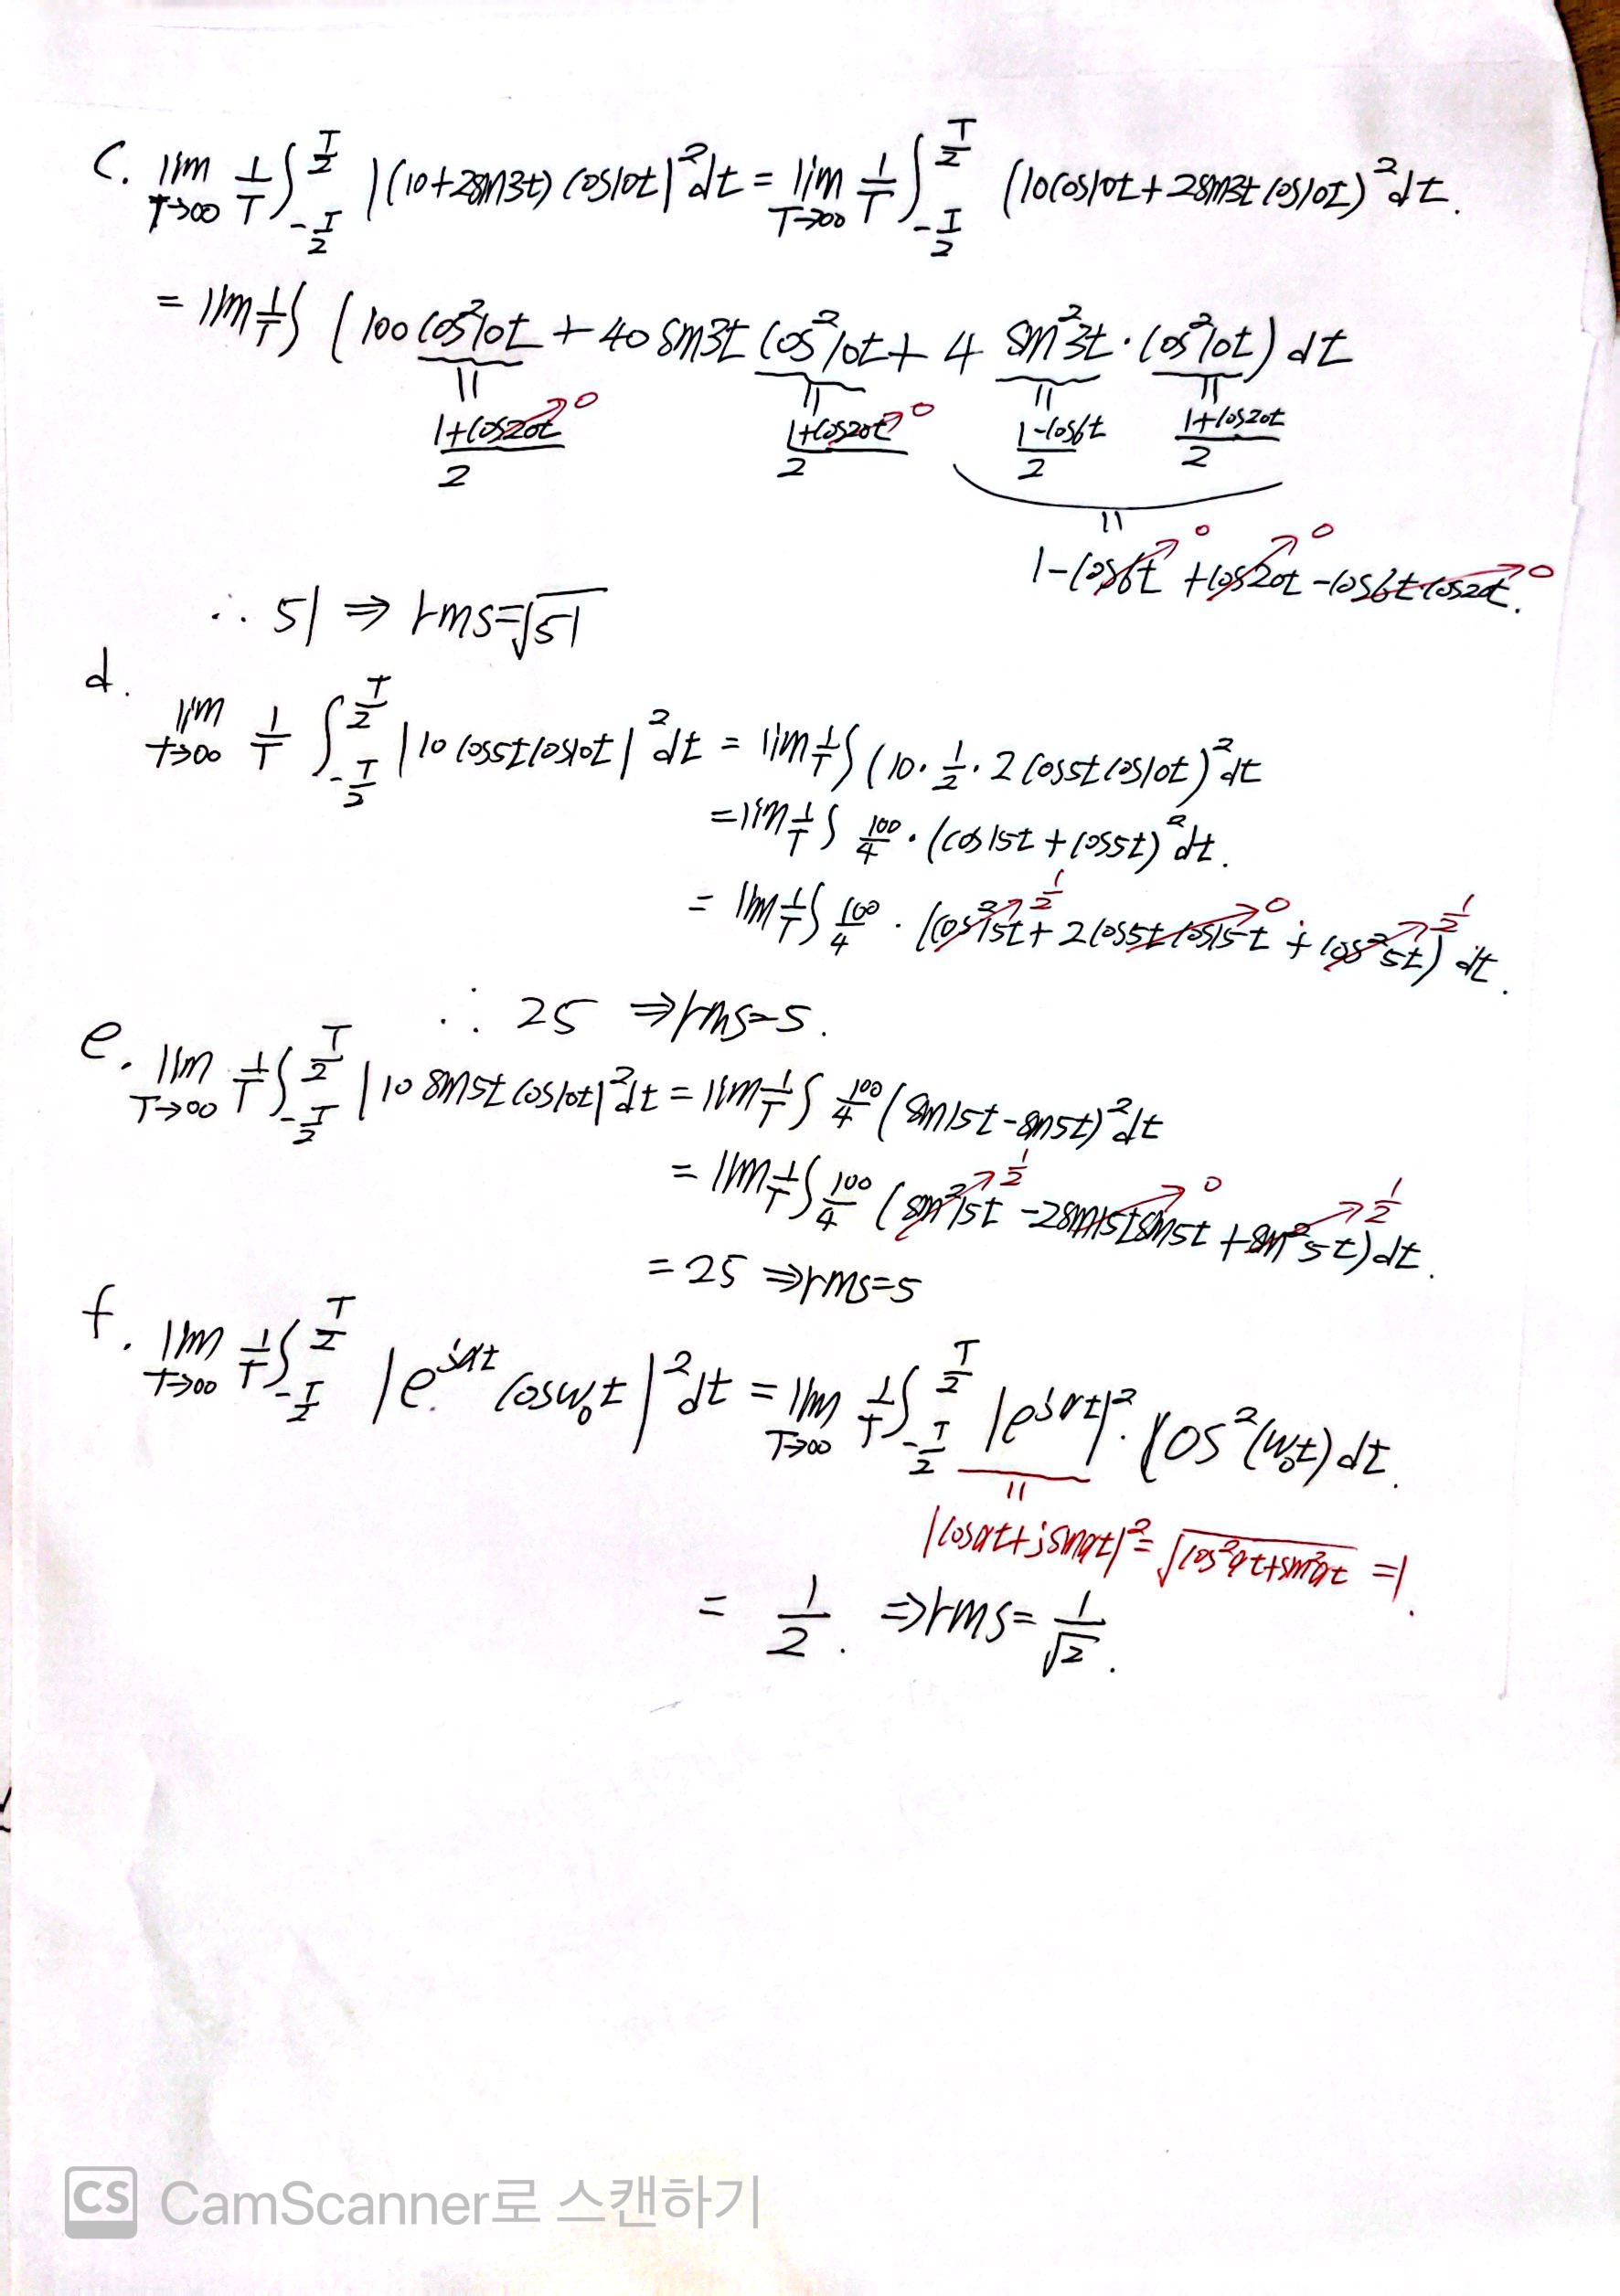 c. lim T→∞ 1/T ∫_{-T/2}^{T/2} |(10+2sin3t) cos10t|² dt = lim T→∞ 1/T ∫_{-T/2}^{T/2} (10cos10t + 2sin3t cos10t)² dt.
= lim 1/T ∫ (100 cos²10t + 40 sin3t cos²10t + 4 sin²3t · cos²10t) dt
|| || || ||
(1+cos20t)/2 → 0 (1+cos20t)/2 → 0 (1-cos6t)/2 (1+cos20t)/2
||
1-cos6t → 0 +cos20t → 0 -cos6t cos20t → 0.
∴ 51 ⇒ rms=√51
d.
lim T→∞ 1/T ∫_{-T/2}^{T/2} |10 cos5t cos10t|² dt = lim 1/T ∫ (10 · 1/2 · 2 cos5t cos10t)² dt
= lim 1/T ∫ 100/4 · (cos15t + cos5t)² dt.
= lim 1/T ∫ 100/4 · (cos²15t → 1/2 + 2cos5t cos15t → 0 + cos²5t → 1/2) dt.
∴ 25 ⇒ rms=5.
e. lim T→∞ 1/T ∫_{-T/2}^{T/2} |10 sin5t cos10t|² dt = lim 1/T ∫ 100/4 (sin15t - sin5t)² dt
= lim 1/T ∫ 100/4 (sin²15t → 1/2 - 2sin15t sin5t → 0 + sin²5t → 1/2) dt.
= 25 ⇒ rms=5
f. lim T→∞ 1/T ∫_{-T/2}^{T/2} |e^{jαt} cosω₀t|² dt = lim T→∞ 1/T ∫_{-T/2}^{T/2} |e^{jαt}|² · cos²(ω₀t) dt.
||
|cosαt + jsinαt|² = √(cos²αt + sin²αt) = 1.
= 1/2. ⇒ rms = 1/√2.
CS CamScanner로 스캔하기